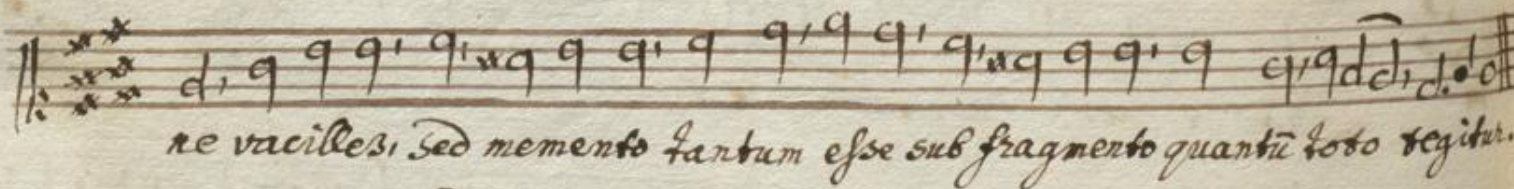 ne vacilles, sed memento tantum esse sub fragmento quantū toto tegitur.